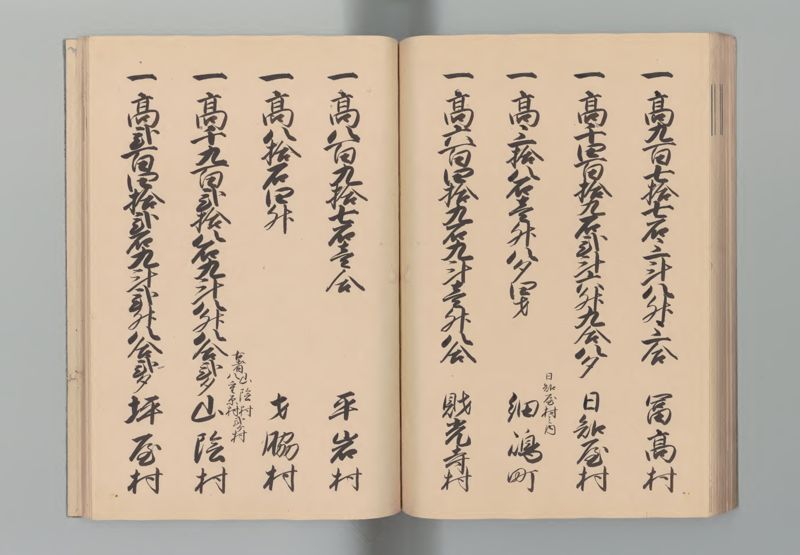 一高九百七拾七石三斗八升三合 冨高村
一高千四百拾九石弐斗六升九合八夕 日知屋村
一高三拾八石壱升八夕四才 細嶋町
日知屋村之内
一高六百四拾九石九斗壱升八合 財光寺村
一高八百九拾七石壱合 平岩村
一高八拾石四升 才脇村
一高千九百弐拾八石九斗八升八合弐夕 山陰村
山陰村
八重原村弐ヶ村
一高弐百四拾弐石九斗弐升八合弐夕 坪屋村